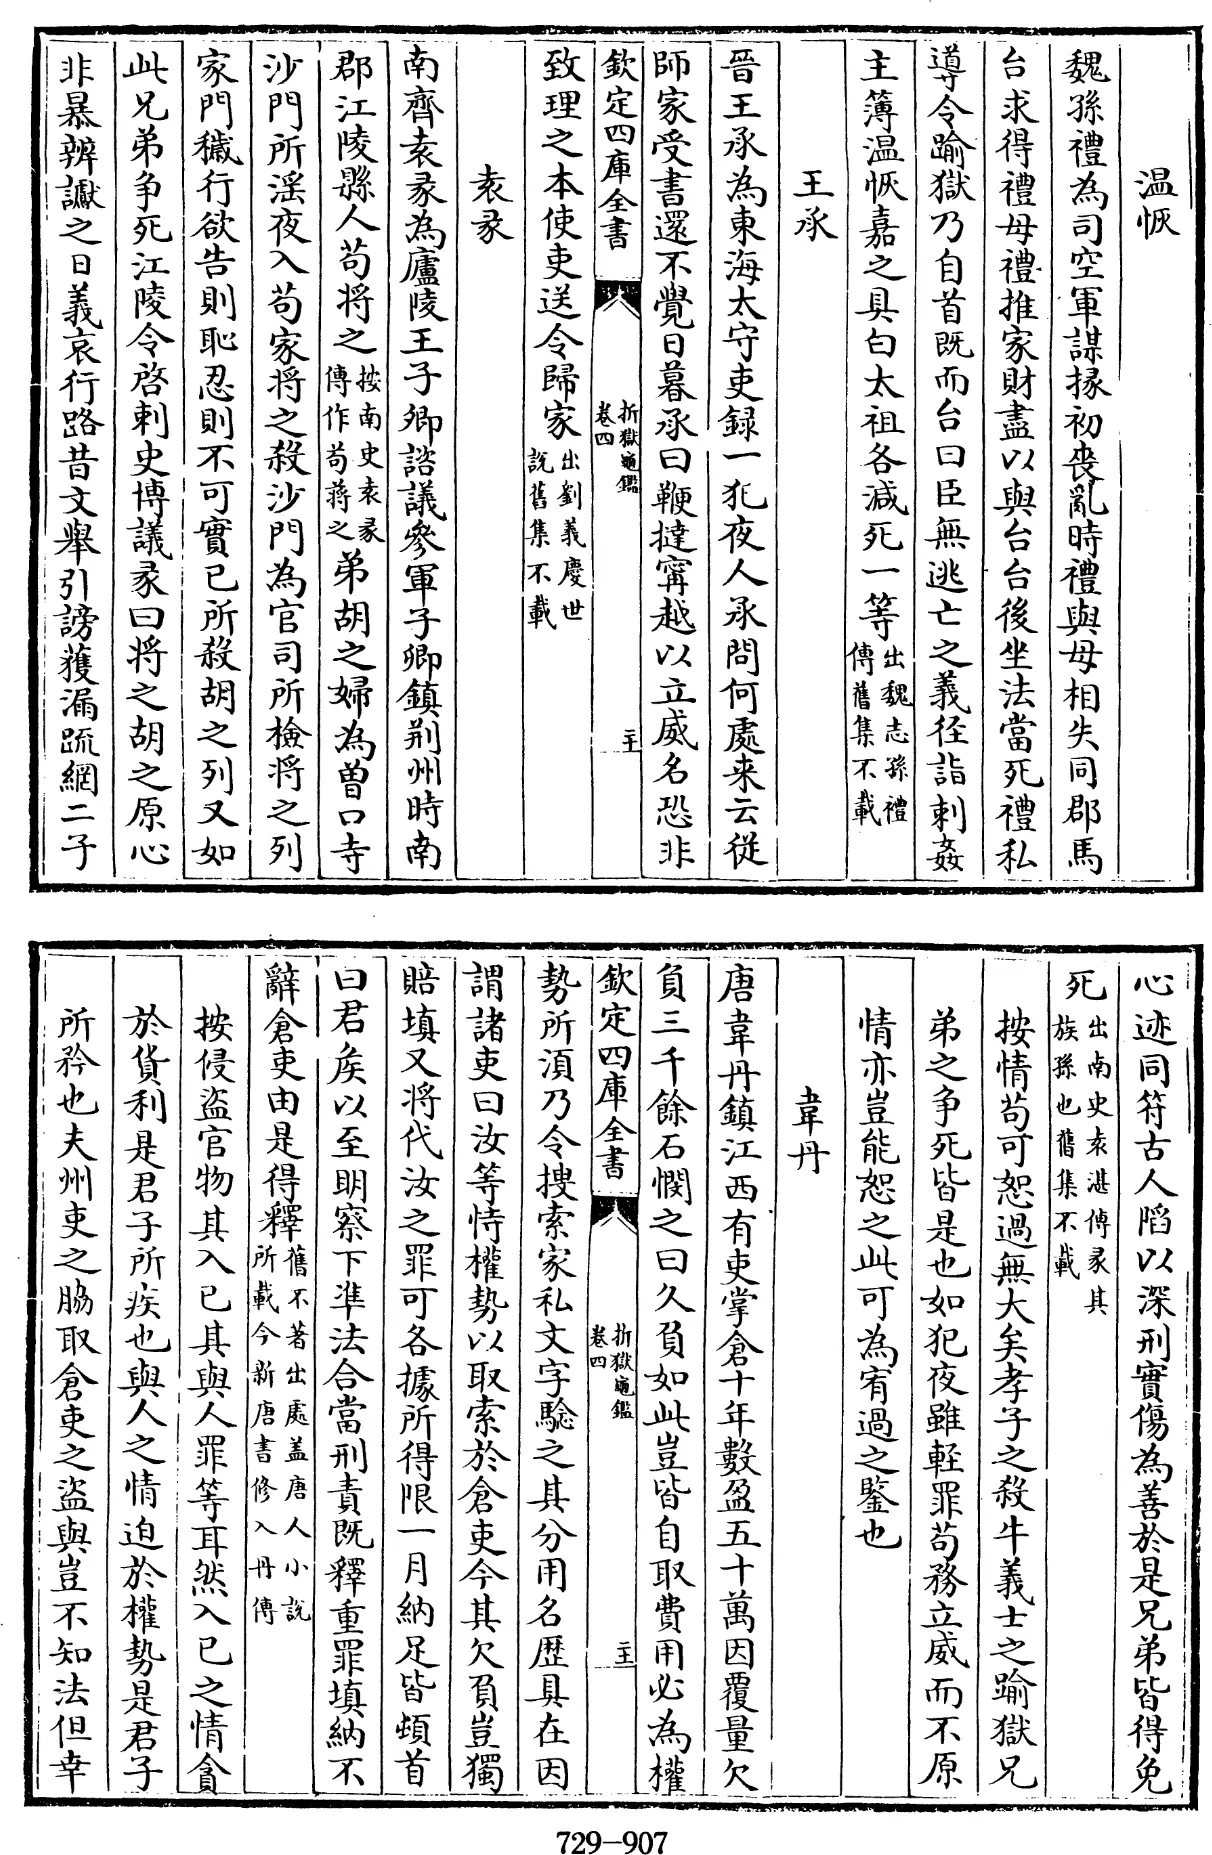 温恢
魏孫禮為司空軍謀掾初喪亂時禮與母相失同郡馬
台求得禮母禮推家財盡以與台台後坐法當死禮私
導令踰獄乃自首既而台曰臣無逃亡之義徑詣刺姦
主簿温恢嘉之具白太祖各減死一等出魏志孫禮傳舊集不載
王承
晉王承為東海太守吏録一犯夜人承問何處来云從
師家受書還不覺日暮承曰鞭撻甯越以立威名恐非
欽定四庫全書
折獄龜鑑
卷四
二十
致理之本使吏送令歸家出劉義慶世說舊集不載
袁彖
南齊袁彖為廬陵王子卿諮議參軍子卿鎮荆州時南
郡江陵縣人苟將之按南史袁彖傳作苟蔣之弟胡之婦為曽口寺
沙門所滛夜入苟家將之殺沙門為官司所檢將之列
家門穢行欲告則恥忍則不可實已所殺胡之列又如
此兄弟争死江陵令啓刺史博議彖曰將之胡之原心
非暴辨讞之日義哀行路昔文舉引謗獲漏疏網二子
心迹同符古人陷以深刑實傷為善於是兄弟皆得免
死出南史袁湛傳彖其族孫也舊集不載
按情苟可恕過無大矣孝子之殺牛義士之踰獄兄
弟之争死皆是也如犯夜雖輕罪苟務立威而不原
情亦豈能恕之此可為宥過之鑒也
韋丹
唐韋丹鎮江西有吏掌倉十年數盈五十萬因覆量欠
負三千餘石憫之曰久負如此豈皆自取費用必為權
欽定四庫全書
折獄龜鑑
卷四
二十一
勢所須乃令搜索家私文字驗之其分用名歷具在因
謂諸吏曰汝等恃權勢以取索於倉吏今其欠負豈獨
賠填又將代汝之罪可各據所得限一月納足皆頓首
曰君矦以至明察下準法合當刑責既釋重罪填納不
辭倉吏由是得釋舊不著出處盖唐人小說所載今新唐書修入丹傳
按侵盜官物其入已其與人罪等耳然入已之情貪
於貨利是君子所疾也與人之情迫於權勢是君子
所矜也夫州吏之脇取倉吏之盜與豈不知法但幸
729-907